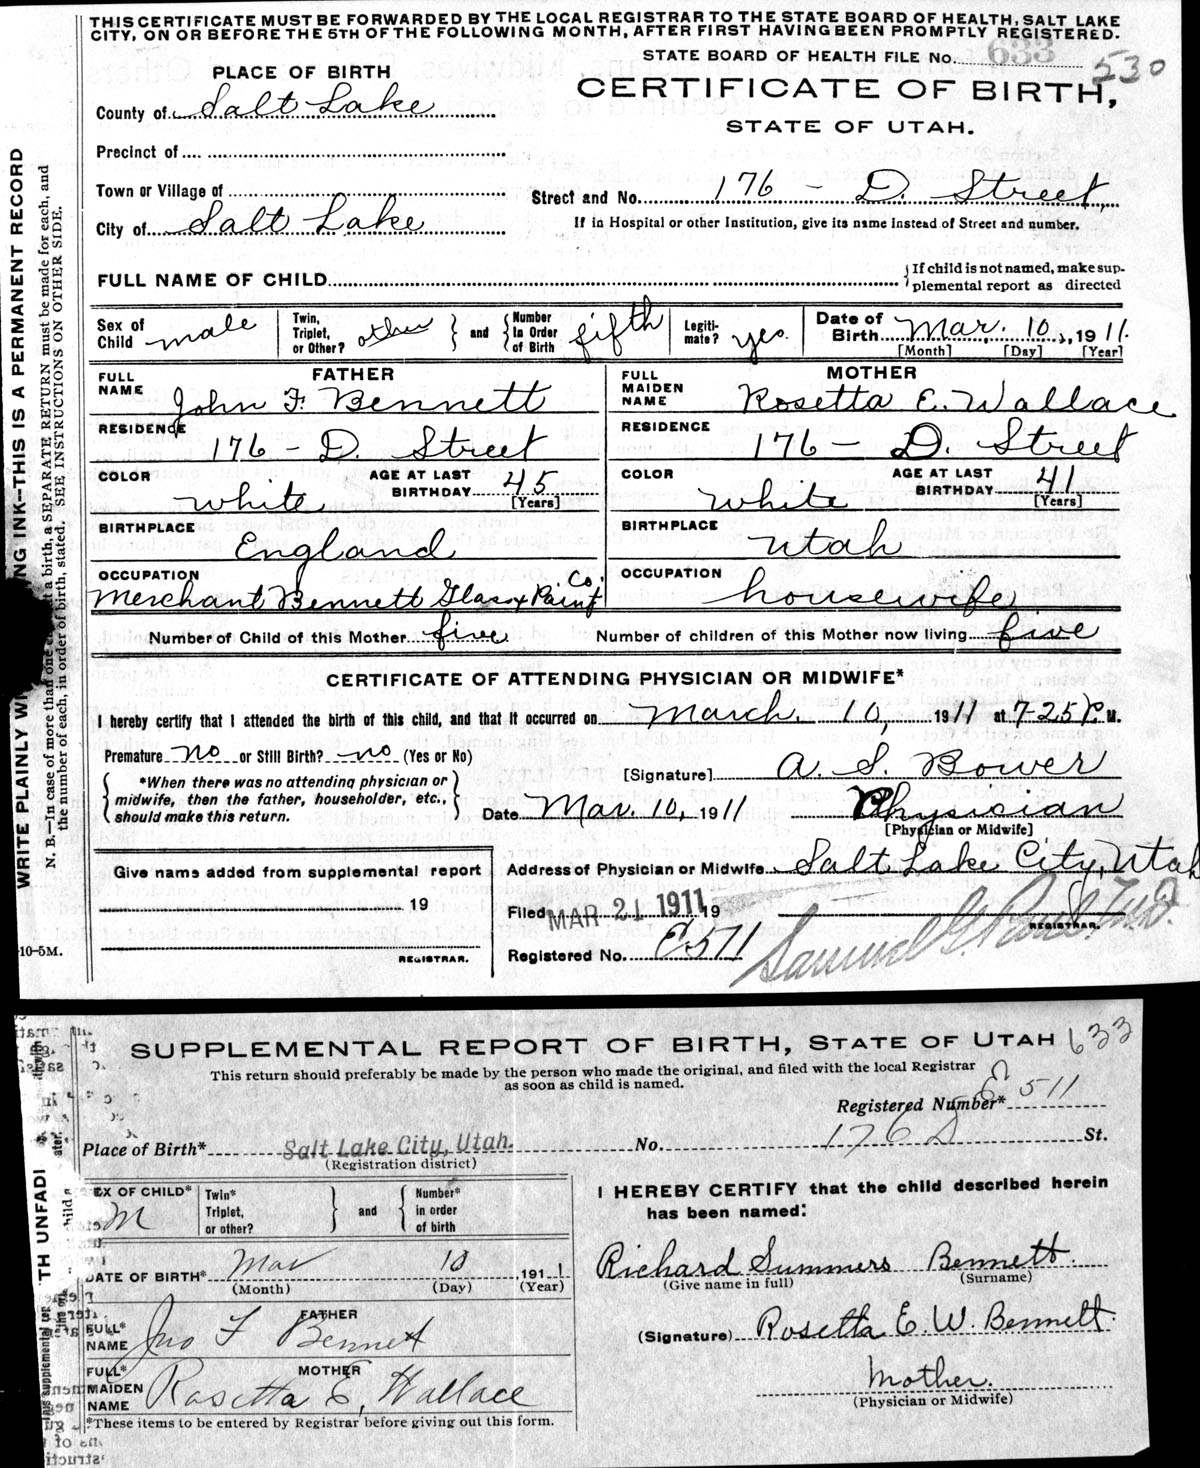 THIS CERTIFICATE MUST BE FORWARDED BY THE LOCAL REGISTRAR TO THE STATE BOARD OF HEALTH, SALT LAKE
CITY, ON OR BEFORE THE 5TH OF THE FOLLOWING MONTH, AFTER FIRST HAVING BEEN PROMPTLY REGISTERED.
STATE BOARD OF HEALTH FILE No. 633 530
PLACE OF BIRTH
CERTIFICATE OF BIRTH,
STATE OF UTAH.
County of Salt Lake
Precinct of
Town or Village of
Street and No. 176 - D. Street,
City of Salt Lake
If in Hospital or other Institution, give its name instead of Street and number.
FULL NAME OF CHILD
If child is not named, make sup-
plemental report as directed
Sex of Child male
Twin, Triplet, or Other? other and Number In Order of Birth fifth
Legiti-mate? yes.
Date of Birth Mar. 10, 1911.
[Month] [Day] [Year]
FATHER
FULL NAME John F. Bennett
RESIDENCE 176 - D. Street
COLOR white AGE AT LAST BIRTHDAY 45 [Years]
BIRTHPLACE England
OCCUPATION Merchant Bennett Glass & Paint Co.
MOTHER
FULL MAIDEN NAME Rosetta E. Wallace
RESIDENCE 176 - D. Street
COLOR white AGE AT LAST BIRTHDAY 41 [Years]
BIRTHPLACE Utah
OCCUPATION housewife
Number of Child of this Mother five Number of children of this Mother now living five
CERTIFICATE OF ATTENDING PHYSICIAN OR MIDWIFE*
I hereby certify that I attended the birth of this child, and that it occurred on March 10, 1911 at 7-25 P. M.
Premature no or Still Birth? no (Yes or No)
*When there was no attending physician or
midwife, then the father, householder, etc.,
should make this return.
[Signature] A. S. Bower
Date Mar. 10, 1911 Physician
[Physician or Midwife]
Address of Physician or Midwife Salt Lake City, Utah
Give name added from supplemental report
19
REGISTRAR.
Filed MAR 21 1911 19
Samuel G. Paul, M.D.
REGISTRAR.
Registered No. E 511
10-5M.
WRITE PLAINLY WI NG INK--THIS IS A PERMANENT RECORD
N. B.—In case of more than one at a birth, a SEPARATE RETURN must be made for each, and
the number of each, in order of birth, stated. SEE INSTRUCTIONS ON OTHER SIDE.
SUPPLEMENTAL REPORT OF BIRTH, STATE OF UTAH 633
This return should preferably be made by the person who made the original, and filed with the local Registrar
as soon as child is named.
Registered Number* E 511
Place of Birth* Salt Lake City, Utah. No. 176 D St.
(Registration district)
EX OF CHILD* M
Twin* Triplet, or other? and Number* in order of birth
DATE OF BIRTH* Mar 10 1911
(Month) (Day) (Year)
FATHER
FULL* NAME Jno F Bennett
MOTHER
FULL* MAIDEN NAME Rosetta E. Wallace
*These items to be entered by Registrar before giving out this form.
I HEREBY CERTIFY that the child described herein
has been named:
Richard Summers Bennett.
(Give name in full) (Surname)
(Signature) Rosetta E. W. Bennett.
Mother.
(Physician or Midwife)
TH UNFADI